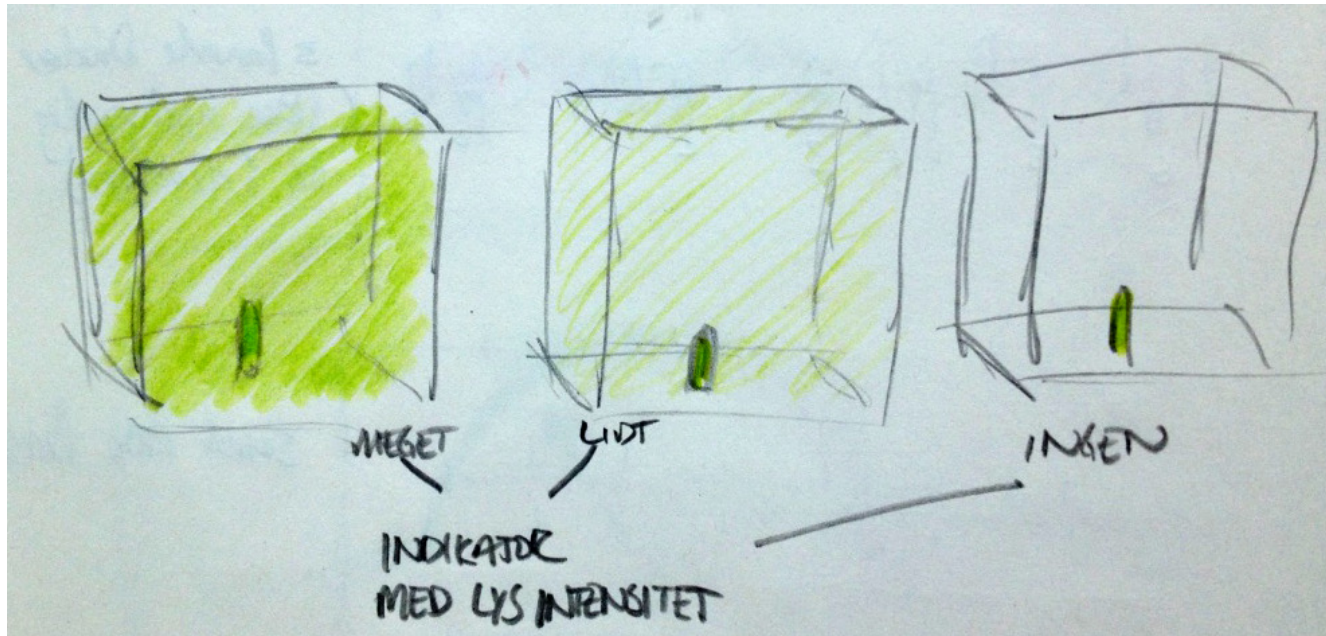 MEGET
LIDT
INGEN
INDIKATOR
MED LYS INTENSITET